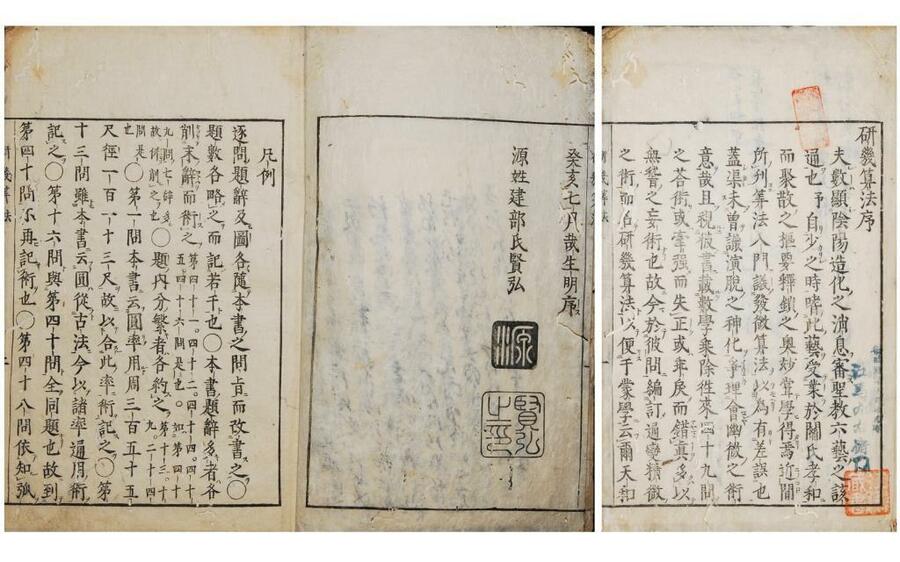 研幾算法序
夫數顯陰陽造化之消息審聖教六藝之該
通也予自少之時嗜此藝受業於關氏孝和
而聚散之樞要釋鎖之奥妙嘗學得焉近閱
所刋算法入門議發微算法以為有差誤也
蓋渠未曾識演脫之神化爭理會幽微之術
意哉且視彼書載數學乘除徃來四十九問
之荅術或牽强而失正或乖戾而錯眞多以
無稽之妄術也故今於彼問編訂過
之術而名研幾算法以便于蒙學云爾天和
癸亥七月哉生明序
源姓建部氏賢弘
源
賢弘之印
凡例
逐問題辭及圖各隨本書之問旨而改書之〇
題數各略之而記若干也〇本書題辭多者各
削末辭而術之
題内分繁者各約之
〇第一問本書云圓率用周三百五十五
尺徑一百一十三尺故以合此率術記之〇第
十三問雖本書云圓從古法今以諸率通用術
記之〇第十六問與第四十問全同題也故到
第四十問不再記術也〇第四十八問依知弧